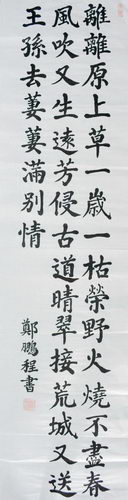 離離原上草一歲一枯榮野火燒不盡春
風吹又生遠芳侵古道晴翠接荒城又送
王孫去萋萋滿別情
鄭鵬程書